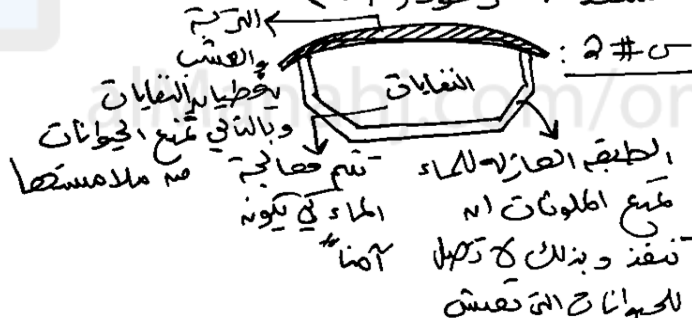 س#2:
التربة
والعشب
يغطيان النفايات
وبالتالي تمنع الحيوانات
من ملامستها
النفايات
تتم معالجة
الماء لكي يكون
آمنا"
الطبقه العازله للماء
تمنع الملوثات ان
تنفذ وبذلك لا تصل
للحيوانات التي تعيش
almanahj.com/om